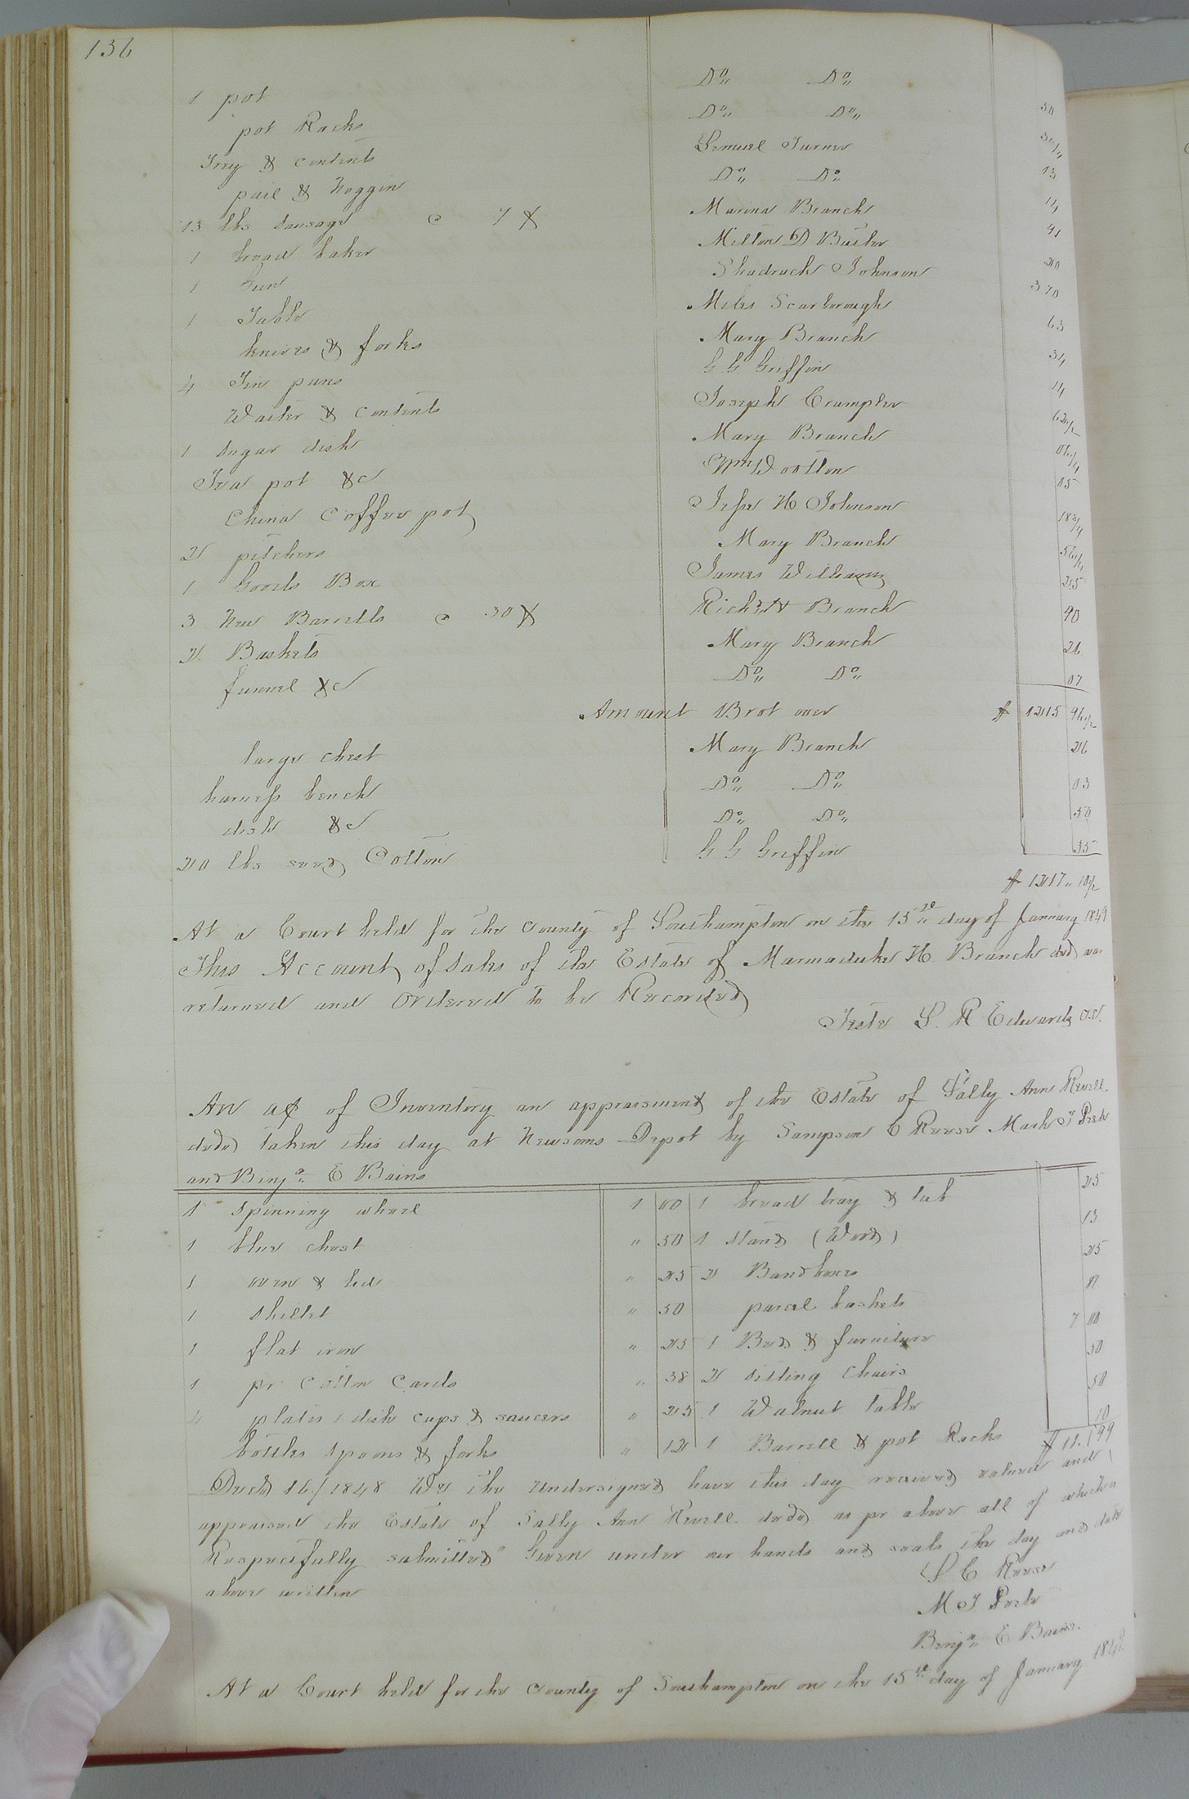 136
1 pot Do,, Do,,
pot Racks Do,, Do,, 50
Tray & contents Lemuel Turner
pail & Noggin Do,, Do,, 13
13 lbs Sausage @ 7 ¢ Marina Branch
1 bread baker Milton D Butler
1 Gun Shadrach Johnson
1 Table Miles Scarborough
knives & forks Mary Branch 63
4 Tin pans G G Griffin
Waiter & contents Joseph Crumpler
1 Sugar dish Mary Branch 62 1/2
Tea pot &c Wm Wootton 06 1/4
China Coffee pot Jesse H Johnson 15
2 pitchers Mary Branch 18 3/4
1 Goods Box James Williams
3 New Barrells @ 30 ¢ Richd H Branch 90
2 Baskets Mary Branch 26
funnel &c Do,, Do,, 07
Amount Brot over $ 1215 96 1/2
large chest Mary Branch 26
harness bench Do,, Do,, 03
dish &c Do,, Do,, 50
20 lbs seed Cotton G G Griffin 35
$ 1217,, 10 1/2
At a Court held for the County of Southampton on the 15th day of January 1849
This Account of Sales of the Estate of Marmaduke H Branch decd was
returned and Ordered to be Recorded
Teste L. R Edwards CC.
An a/c of Inventory an appraisment of the Estate of Sally Ann Revell
decd taken this day at Newsoms Depot by Sampson C Reese Mark T Peete
and Benja. E Bains
1 Spinning wheel 1 00 1 bread tray & tub 25
1 blue chest ,, 50 1 stand (Wood) 13
1 oven & lid ,, 25 2 Bandboxes 25
1 Skillet ,, 50 parcel baskets
1 flat iron ,, 25 1 Bed & furniture 7 00
1 pr Cotton Cards ,, 38 2 sitting chairs 50
4 plates 1 dish cups & saucers ,, 25 1 Walnut table 50
bottles spoons & forks ,, 12 1 Barrell & pot Racks 10
$ 11.99
Decd 16/1848 We the Undersigned have this day received valued and
appraised the Estate of Sally Ann Revell decd as pr above all of which is
Respectfully submitted Given under our hands and seals the day and date
above written
S C Reese
M T Peete
Benja. E Bains.
At a Court held for the County of Southampton on the 15th day of January 1849